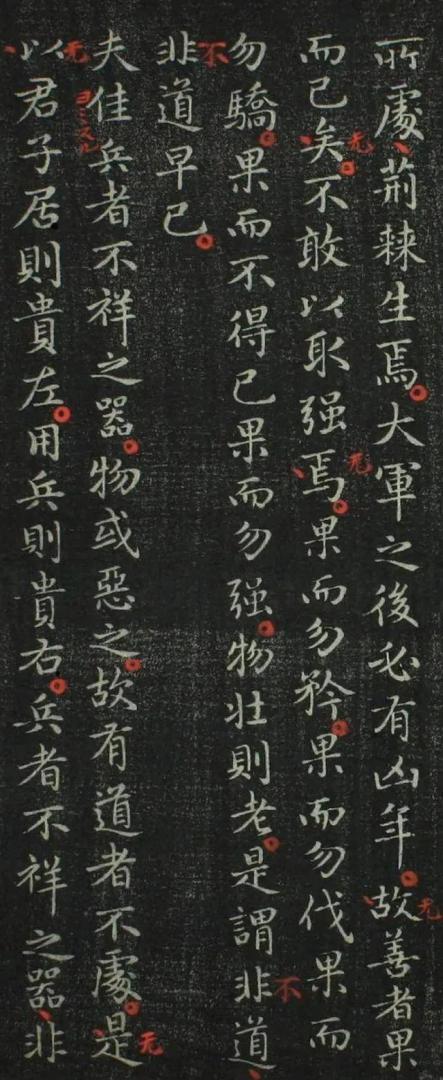 所處荊棘生焉大軍之後必有凶年故善者果
而已矣不敢以取强焉果而勿矜果而勿伐果而
勿驕果而不得已果而勿强物壯則老是謂非道
非道早已
夫佳兵者不祥之器物或惡之故有道者不處是
以君子居則貴左用兵則貴右兵者不祥之器非
无
无
无
不
不
无
无